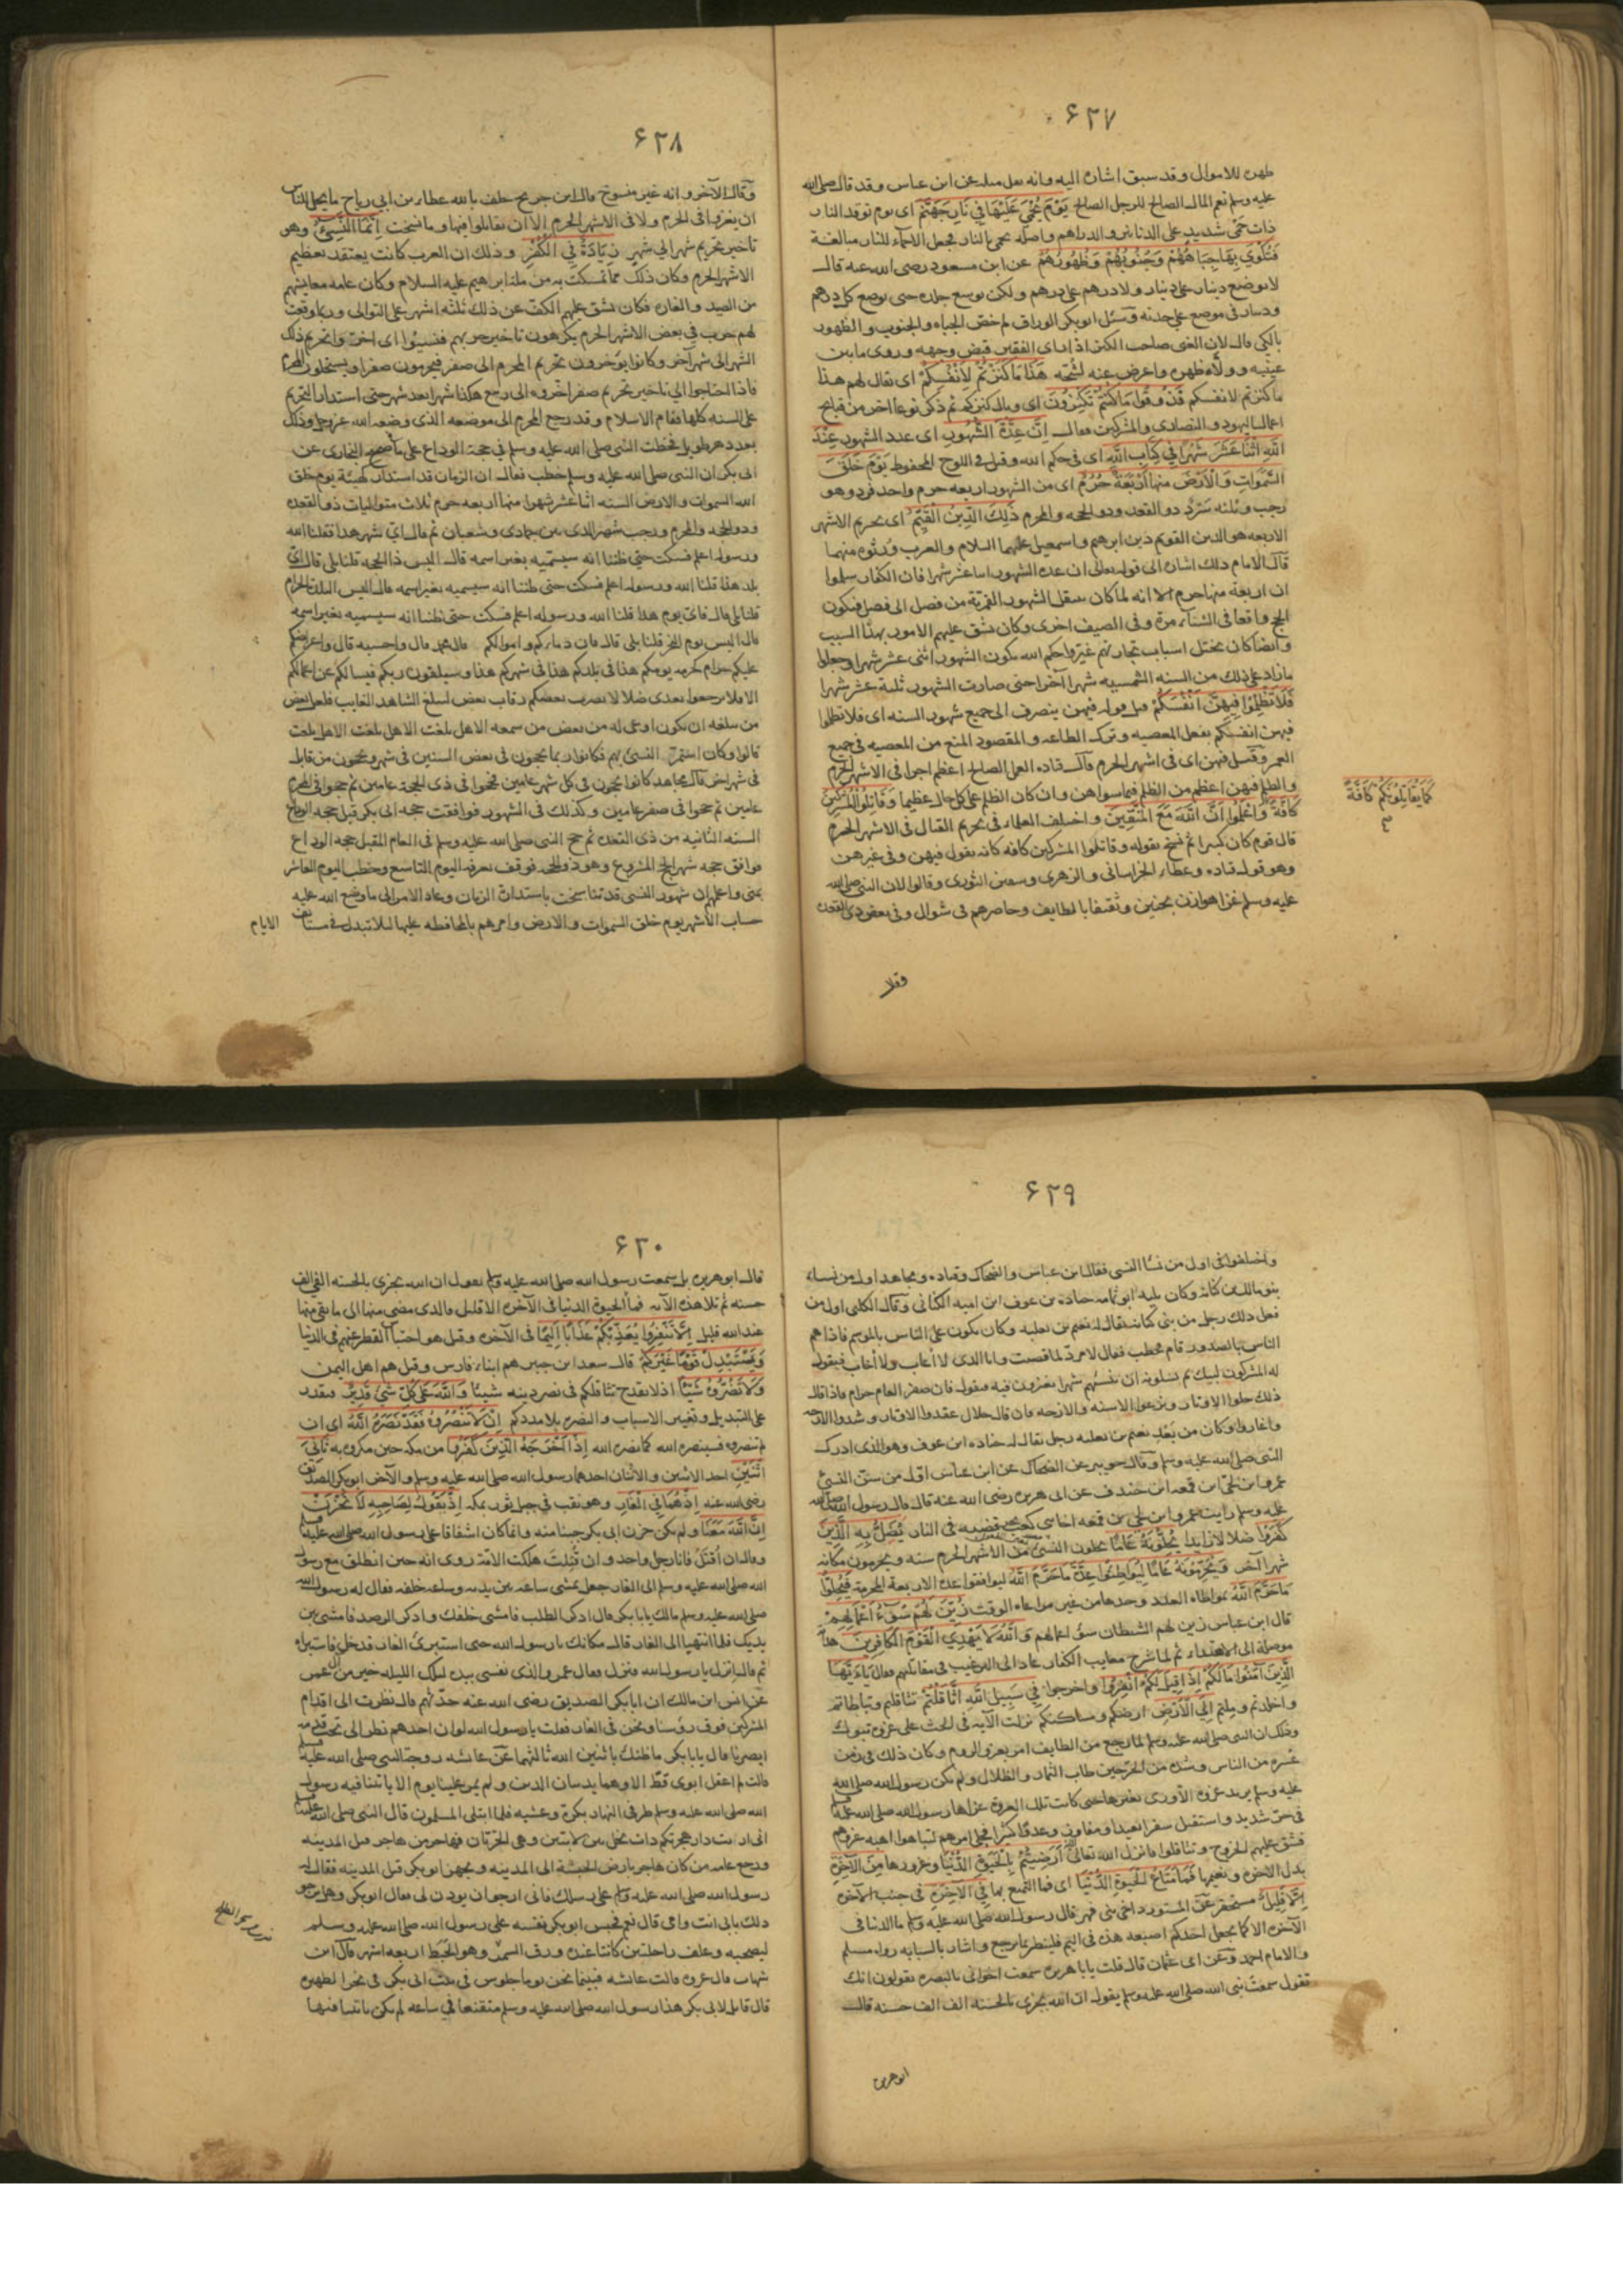 ۶۲۷
طهره للاموال وقد سبق اشارة اليه وانه نقل مثله عن ابن عباس وقد قال صلى الله
عليه وسلم نعم المال الصالح للرجل الصالح يَوْمَ يُحْمَىٰ عَلَيْهَا فِي نَارِ جَهَنَّمَ اى يوم توقد النار
ذات حَمْىٍ شديد على الدنانير والدراهم واصله تحمى بالنار فجعل الاحماء للنار مبالغة
فَتُكْوَىٰ بِهَا جِبَاهُهُمْ وَجُنُوبُهُمْ وَظُهُورُهُمْ عن ابن مسعود رضى الله عنه قال
لا يوضع دينار على دينار ولا درهم على درهم ولكن يوسع جلده حتى يوضع كل درهم
ودينار فى موضع على حدته وسئل ابوبكر الوراق لم خص الجباه والجنوب والظهور
بالكى قال لان الغنى صاحب الكنز اذا راى الفقير قبض وجهه وزوى ما بين
عينيه وولاه ظهره واعرض عنه كشحه هَٰذَا مَا كَنَزْتُمْ لِأَنْفُسِكُمْ اى يقال لهم هذا
ما كنزتم لانفسكم فَذُوقُوا مَا كُنْتُمْ تَكْنِزُونَ اى وبال كنزكم ثم ذكر نوعا اخر من قبايح
اعمال اليهود والنصارى والمشركين فقال إِنَّ عِدَّةَ الشُّهُورِ اى عدد الشهور عِنْدَ
اللَّهِ اثْنَا عَشَرَ شَهْرًا فِي كِتَابِ اللَّهِ اى فى حكم الله وقيل فى اللوح المحفوظ يَوْمَ خَلَقَ
السَّمَوَاتِ وَالْأَرْضَ مِنْهَا أَرْبَعَةٌ حُرُمٌ اى من الشهور اربعه حرم واحد فرد وهو
رجب وثلثه سَرْدٌ ذو القعده وذو الحجه والمحرم ذَٰلِكَ الدِّينُ الْقَيِّمُ اى تحريم الاشهر
الاربعه هو الدين القويم دين ابرهيم واسمعيل عليهما السلام والعرب ورثوه منهما
قال الامام ذلك اشاره الى قوله تعالى ان عدة الشهور اثنا عشر شهرا فان الكفار سلموا
ان اربعة منها حرم الا انه لما كان ينتقل الشهور القمرية من فصل الى فصل فيكون
الحج واقعا فى الشتاء مرة وفى الصيف اخرى وكان يشق عليهم الامور بهذا السبب
وايضا كان يختل اسباب تجارتهم غيروا حكم الله بكون الشهور اثنى عشر شهرا وجعلوا
ما زاد على ذلك من السنه الشمسيه شهرا آخر حتى صارت الشهور ثلثة عشر شهرا
فَلَا تَظْلِمُوا فِيهِنَّ أَنْفُسَكُمْ قيل قوله فيهن ينصرف الى جميع شهور السنه اى فلا تظلموا
فيهن انفسكم بفعل المعصيه وترك الطاعه والمقصود المنع من المعصيه فى جميع
العمر وقيل فيهن اى فى اشهر الحرم قال قتاده العمل الصالح اعظم اجرا فى الاشهر الحرم
والظلم فيهن اعظم من الظلم فيما سواهن وان كان الظلم على كل حال عظيما وَقَاتِلُوا الْمُشْرِكِينَ
كَافَّةً وَاعْلَمُوا أَنَّ اللَّهَ مَعَ الْمُتَّقِينَ واختلف العلماء فى تحريم القتال فى الاشهر الحرم
كَمَا يُقَاتِلُونَكُمْ كَافَّةً
قال قوم كان كبيرا ثم نسخ بقوله وقاتلوا المشركين كافه كانه يقول فيهن وفى غيرهن
وهو قول قتاده وعطاء الخراسانى والزهرى وسفين الثورى وقالوا لان النبى صلى الله
عليه وسلم غزا هوازن بحنين وثقيفا بالطايف وحاصرهم فى شوال وفى بعض ذى القعده
وقال
۶۲۸
وقال الآخرون انه غير منسوخ قال ابن جريج حلف بالله عطاء بن ابى رباح ما يحل للناس
ان يغزوا فى الحرم ولا فى الاشهر الحرم الا ان يقاتلوا فيها وما نسخت إِنَّمَا النَّسِيءُ وهو
تاخير تحريم شهر الى شهر زِيَادَةٌ فِي الْكُفْرِ وذلك ان العرب كانت يعتقد تعظيم
الاشهر الحرم وكان ذلك مما تمسكت به من ملة ابرهيم عليه السلام وكان عامه معايشهم
من الصيد والغاره فكان يشق عليهم الكف عن ذلك ثلثه اشهر على التوالى وربما وقعت
لهم حرب فى بعض الاشهر الحرم يكرهون تاخير حربهم فنسئوا اى اخروا تحريم ذلك
الشهر الى شهر آخر وكانوا يؤخرون تحريم المحرم الى صفر فيحرمون صفرا ويستحلون المحرم
فاذا احتاجوا الى تاخير تحريم صفر اخروه الى ربيع هكذا شهرا بعد شهر حتى استدار التحريم
على السنه كلها فقام الاسلام وقد رجع المحرم الى موضعه الذى وضعه الله عز وجل وذلك
بعد دهر طويل فخطب النبى صلى الله عليه وسلم فى حجة الوداع على ما صححه البخارى عن
ابى بكرة ان النبى صلى الله عليه وسلم خطب فقال ان الزمان قد استدار كهيئة يوم خلق
الله السموات والارض السنه اثنا عشر شهرا منها اربعه حرم ثلاث متواليات ذو القعده
وذو الحجه والمحرم ورجب شهر الذى بين جمادى وشعبان ثم قال اىّ شهر هذا فقلنا الله
ورسوله اعلم فسكت حتى ظننا انه سيسميه بغير اسمه قال اليس ذا الحجه قلنا بلى قال اىّ
بلد هذا قلنا الله ورسوله اعلم فسكت حتى ظننا انه سيسميه بغير اسمه قال اليس البلدة الحرام
قلنا بلى قال فاىّ يوم هذا قلنا الله ورسوله اعلم فسكت حتى ظننا انه سيسميه بغير اسمه
قال اليس يوم النحر قلنا بلى قال فان دماءكم واموالكم قال محمد قال واحسبه قال واعراضكم
عليكم حرام كحرمه يومكم هذا فى بلدكم هذا فى شهركم هذا وسيلقون ربكم فيسالكم عن اعمالكم
الا فلا ترجعوا بعدى ضلالا يضرب بعضكم رقاب بعض ليبلغ الشاهد الغايب فلعل بعض
من يبلغه ان يكون اوعى له من بعض من سمعه الا هل بلغت الا هل بلغت الا هل بلغت
قالوا وكان استمر النسئ بهم فكانوا ربما يحجون فى بعض السنين فى شهر ويحجون من قابل
فى شهر اخر قال مجاهد كانوا يحجون فى كل شهر عامين فحجوا فى ذى الحجة عامين ثم حجوا فى المحرم
عامين ثم حجوا فى صفر عامين وكذلك فى الشهور فوافقت حجه ابى بكر قبل حجه الوداع
السنه الثانيه من ذى القعده ثم حج النبى صلى الله عليه وسلم فى العام المقبل حجه الوداع
فوافق حجه شهر الحج المشروع وهو ذو الحجه فوقف بعرفه اليوم التاسع وخطب اليوم العاشر
بمنى واعلمهم ان شهور النسئ قد تناسخت باستدارة الزمان وعاد الامر الى ما وضع الله عليه
حساب الاشهر يوم خلق السموات والارض وامرهم بالمحافظه عليها لئلا تتبدل فى مستانف
الايام
۶۲۹
واختلفوا فى اول من نسأ النسئ فقال ابن عباس والضحاك وقتاده ومجاهد اول من نساء
بنو مالك بن كنانه وكان يليه ابو ثمامه جناده بن عوف ابن اميه الكنانى وقال الكلبى اول من
فعل ذلك رجل من بنى كنانه يقال له نعيم بن ثعلبه وكان يكون على الناس بالموسم فاذا هم
الناس بالصدور قام فخطب فقال لا مردّ لما قضيت وانا الذى لا أعاب ولا أخاب فيقول
له المشركون لبيك ثم يسلونه ان ينسئهم شهرا يغزون فيه فيقول فان صفر العام حرام فاذا قال
ذلك حلوا الاوتار ونزعوا الاسنه والازجه وان قال حلال عقدوا الاوتار وشدوا الازجه
واغاروا وكان من بَعْدِ نعيم بن ثعلبه رجل يقال له جناده ابن عوف وهو الذى ادرك
النبى صلى الله عليه وسلم وقال جويبر عن الضحاك عن ابن عباس اول من سن النسئ
عمرو ابن لحى ابن قمعه ابن خندف عن ابى هريره رضى الله عنه قال قال رسول الله صلى الله
عليه وسلم رايت عمرو ابن لحى بن قمعه اخا بنى كعب يجر قصبه فى النار يُضَلُّ بِهِ الَّذِينَ
كَفَرُوا ضلالا زايدا يُحِلُّونَهُ عَامًا يحلون النسئ من الاشهر الحرم سنه ويحرمون مكانه
شهرا آخر وَيُحَرِّمُونَهُ عَامًا لِيُوَاطِئُوا عِدَّةَ مَا حَرَّمَ اللَّهُ ليوافقوا عدة الاربعة المحرمة فَيُحِلُّوا
مَا حَرَّمَ اللَّهُ بمواطاه العدد وحدها من غير مراعاه الوقت زُيِّنَ لَهُمْ سُوءُ أَعْمَالِهِمْ
قال ابن عباس زين لهم الشيطان سؤ اعمالهم وَاللَّهُ لَا يَهْدِي الْقَوْمَ الْكَافِرِينَ هدا
موصلة الى الاهتداء ثم لما شرح معايب الكفار عاد الى الترغيب فى مقاتلتهم فقال يَا أَيُّهَا
الَّذِينَ آمَنُوا مَا لَكُمْ إِذَا قِيلَ لَكُمُ انْفِرُوا واخرجوا فِي سَبِيلِ اللَّهِ اثَّاقَلْتُمْ تثاقلتم وتباطاتم
واخلدتم وملتم إِلَى الْأَرْضِ ارضكم ومساكنكم نزلت الآيه فى الحث على غزوه تبوك
وذلك ان النبى صلى الله عليه وسلم لما رجع من الطايف امر بغزو الروم وكان ذلك فى زمن
عسره من الناس وشده من الحر حين طاب الثمار والظلال ولم يكن رسول الله صلى الله
عليه وسلم يريد غزوه الا ورّى بغيرها حتى كانت تلك الغزوة غزاها رسول الله صلى الله عليه
فى حر شديد واستقبل سفرا بعيدا ومفاوز وعدوا كثيرا فجلى امرهم ليتاهبوا اهبه غزوهم
فشق عليهم الخروج وتثاقلوا فانزل الله تعالى أَرَضِيتُمْ بِالْحَيَاةِ الدُّنْيَا وغرورها مِنَ الْآخِرَةِ
بدل الاخره ونعيمها فَمَا مَتَاعُ الْحَيَاةِ الدُّنْيَا اى فما التمتع بها فِي الْآخِرَةِ فى جنب الآخره
إِلَّا قَلِيلٌ مستحقر عن المستورد اخى بنى فهر قال رسول الله صلى الله عليه وسلم ما الدنيا فى
الآخره الا كما يجعل احدكم اصبعه هذه فى اليم فلينظر بما يرجع واشار بالسبابه رواه مسلم
والامام احمد وعن ابى عثمان قال قلت يابا هريره سمعت اخوانى بالبصره يقولون انك
تقول سمعت نبى الله صلى الله عليه وسلم يقول ان الله يجزى بالحسنه الف الف حسنه قال
ابو هريره
۶۳۰
قال ابوهريره بل سمعت رسول الله صلى الله عليه وسلم يقول ان الله يجزى بالحسنه الفى الف
حسنه ثم تلا هذه الآيه فما الحيوة الدنيا فى الآخره الا قليل فالذى مضى منها الى ما بقى منها
عند الله قليل إِلَّا تَنْفِرُوا يُعَذِّبْكُمْ عَذَابًا أَلِيمًا فى الآخره وقيل هو احتباس القطر عنهم فى الدنيا
وَيَسْتَبْدِلْ قَوْمًا غَيْرَكُمْ قال سعيد ابن جبير هم ابناء فارس وقيل هم اهل اليمن
وَلَا تَضُرُّوهُ شَيْئًا اذ لا يقدح تثاقلكم فى نصر دينه شيئا وَاللَّهُ عَلَىٰ كُلِّ شَيْءٍ قَدِيرٌ فيقدر
على التبديل وتغيير الاسباب والنصره بلا مددكم إِنْ لَا تَنْصُرُوهُ فَقَدْ نَصَرَهُ اللَّهُ اى ان
لم تنصروه فسينصره الله كما نصره الله إِذْ أَخْرَجَهُ الَّذِينَ كَفَرُوا من مكه حين مكروا به ثَانِيَ
اثْنَيْنِ احد الاثنين والاثنان احدهما رسول الله صلى الله عليه وسلم والآخر ابوبكر الصديق
رضى الله عنه إِذْ هُمَا فِي الْغَارِ وهو نقب فى جبل ثور بمكه إِذْ يَقُولُ لِصَاحِبِهِ لَا تَحْزَنْ
إِنَّ اللَّهَ مَعَنَا ولم يكن حزن ابى بكر جبنا منه وانما كان اشفاقا على رسول الله صلى الله عليه وسلم
وقال ان أُقتَل فانا رجل واحد وان قُتِلتَ هلكت الامّه روى انه حين انطلق مع رسول
الله صلى الله عليه وسلم الى الغار جعل يمشى ساعه بين يديه وساعه خلفه فقال له رسول الله
صلى الله عليه وسلم مالك يابا بكر قال اذكر الطلب فامشى خلفك واذكر الرصد فامشى بين
يديك فلما انتهيا الى الغار قال مكانك يا رسول الله حتى استبرئ الغار فدخل فاستبراه
ثم قال انزل يا رسول الله فنزل فقال عمر والذى نفسى بيده لتلك الليله خير من آل عمر
عن انس ابن مالك ان ابا بكر الصديق رضى الله عنه حدثهم قال نظرت الى اقدام
المشركين فوق رؤسنا ونحن فى الغار فقلت يا رسول الله لو ان احدهم نظر الى تحت قدميه
ابصرنا فقال يابا بكر ما ظنك باثنين الله ثالثهما عن عائشه زوجة النبى صلى الله عليه وسلم
قالت لم اعقل ابوى قط الا وهما يدينان الدين ولم يمر علينا يوم الا ياتينا فيه رسول
الله صلى الله عليه وسلم طرفى النهار بكرة وعشيه فلما ابتلى المسلمون قال النبى صلى الله عليه وسلم
انى اريت دار هجرتكم ذات نخل بين لابتين وهى الحرتان فهاجر من هاجر قبل المدينه
ورجع عامه من كان هاجر بارض الحبشة الى المدينه وتجهز ابوبكر قبل المدينه فقال له
رسول الله صلى الله عليه وسلم على رسلك فانى ارجو ان يوذن لى فقال ابوبكر وهل ترجو
ذلك بابى انت وامى قال نعم فحبس ابوبكر نفسه على رسول الله صلى الله عليه وسلم
ليصحبه وعلف راحلتين كانتا عنده ورق السمر وهو الخَبَط اربعه اشهر قال ابن
شهاب قال عروه قالت عائشه فبينما نحن يوما جلوس فى بيت ابى بكر فى نحر الظهيره
قال قايل لابى بكر هذا رسول الله صلى الله عليه وسلم متقنعا فى ساعه لم يكن ياتينا فيها